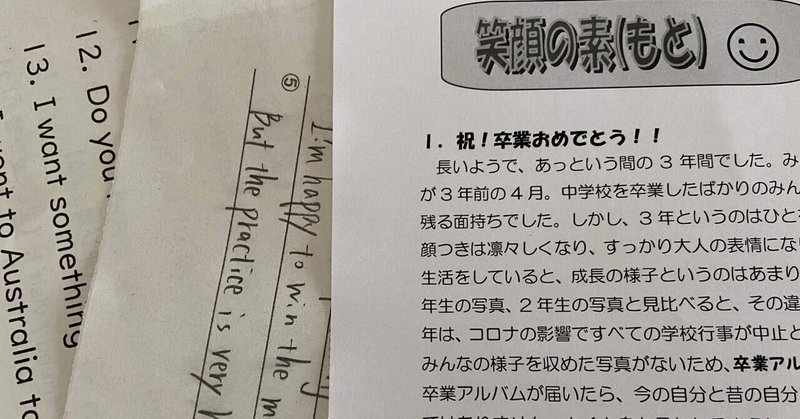 12. Do you
13. I want something
want to Australia to
⑤
I'm happy to win the
But the practice is very
笑顔の素(もと)
1. 祝！卒業おめでとう！！
長いようで、あっという間の3年間でした。み
が3年前の4月。中学校を卒業したばかりのみん
残る面持ちでした。しかし、3年というのはひと
顔つきは凛々しくなり、すっかり大人の表情にな
生活をしていると、成長の様子というのはあまり
年生の写真、2年生の写真と見比べると、その違
年は、コロナの影響ですべての学校行事が中止と
みんなの様子を収めた写真がないため、卒業アル
卒業アルバムが届いたら、今の自分と昔の自分